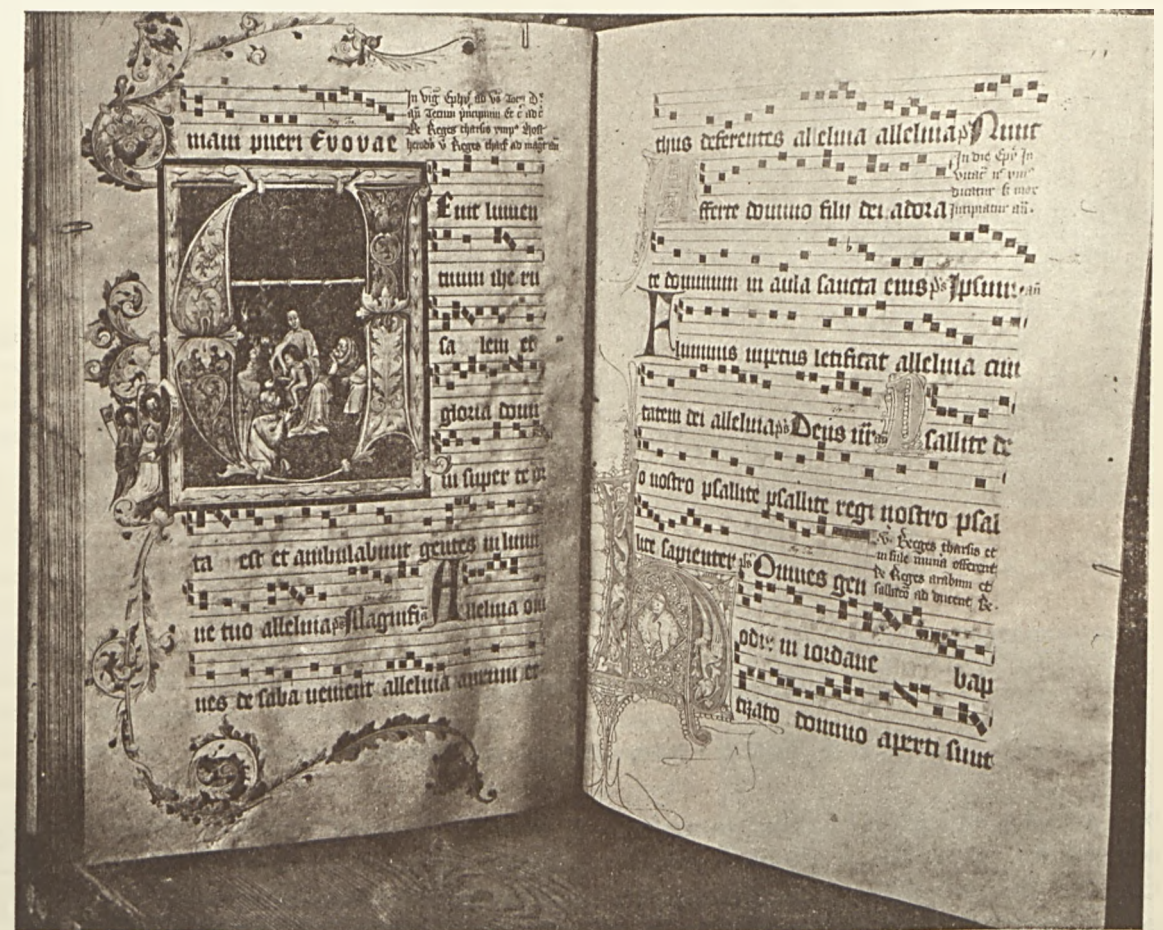 mam pueri Evovae
In vig
De Reges tharsis
Reges
Enit lumen
tuum iheru
salem et
gloria domi
ni super te or
ta est et ambulabunt gentes in lumi
ne tuo alleluia ps Magnifi an Alleluia om
nes de saba venient alleluia aurum et
thus deferentes alleluia alleluia ps Nunc
fferte domino filij dei adora
In die
te dominum in aula sancta eius ps Ipsum an
Fluminis impetus letificat alleluia civi
tatem dei alleluia ps Deus nr an Psallite de
o nostro psallite psallite regi nostro psal
lite sapienter ps Omnes gen
Reges tharsis et
offerent
De Reges arabum et
odie in iordane bap
tizato domino aperti sunt